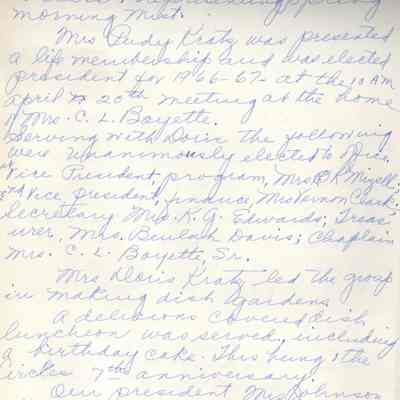 morning Mist.
Mrs Rudy Kratz was presented
a life membership and was elected
president for 1966-67 at the 10 AM
April 20th meeting at the home
of Mrs. C. L. Boyette.
Serving with Doris the following
were unanimously elected to office.
Vice President, program, Mrs. B R Mizell;
2nd Vice president, finance, Mrs Vernon Clark;
Secretary Mrs. R. G. Edwards; Treas-
urer, Mrs. Beulah Davis; Chaplain
Mrs. C. L. Boyette, Sr.
Mrs Doris Kratz led the group
in making dish gardens
A delicious covered dish
luncheon was served, including
a birthday cake. This being the
circles 7th anniversary.
Our president Mrs Johnson